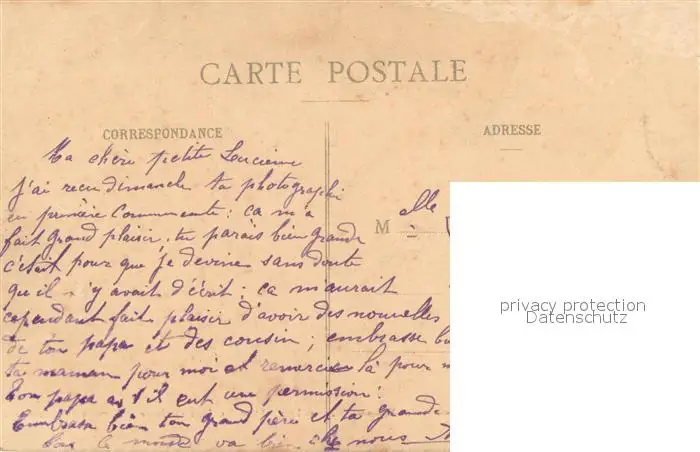 CARTE POSTALE
CORRESPONDANCE
ADRESSE
Ma chère petite Lucienne
j'ai recu dimanche ta photographi
en première Communiante : ça m'a
fait Grand plaisir. tu parais bien Grande
c'était pour que je devine sans doute
qu'il n'y avait d'écrit : ça m'aurait
cependant fait plaisir d'avoir des nouvelles
de ton papa et des cousin ; embrasse
ta maman pour moi et remercie là pour
Ton papa a s'il eut une permission :
Embrasse bien ton Grand père et ta grande
le monde va bien chez nous
M elle
privacy protection
Datenschutz